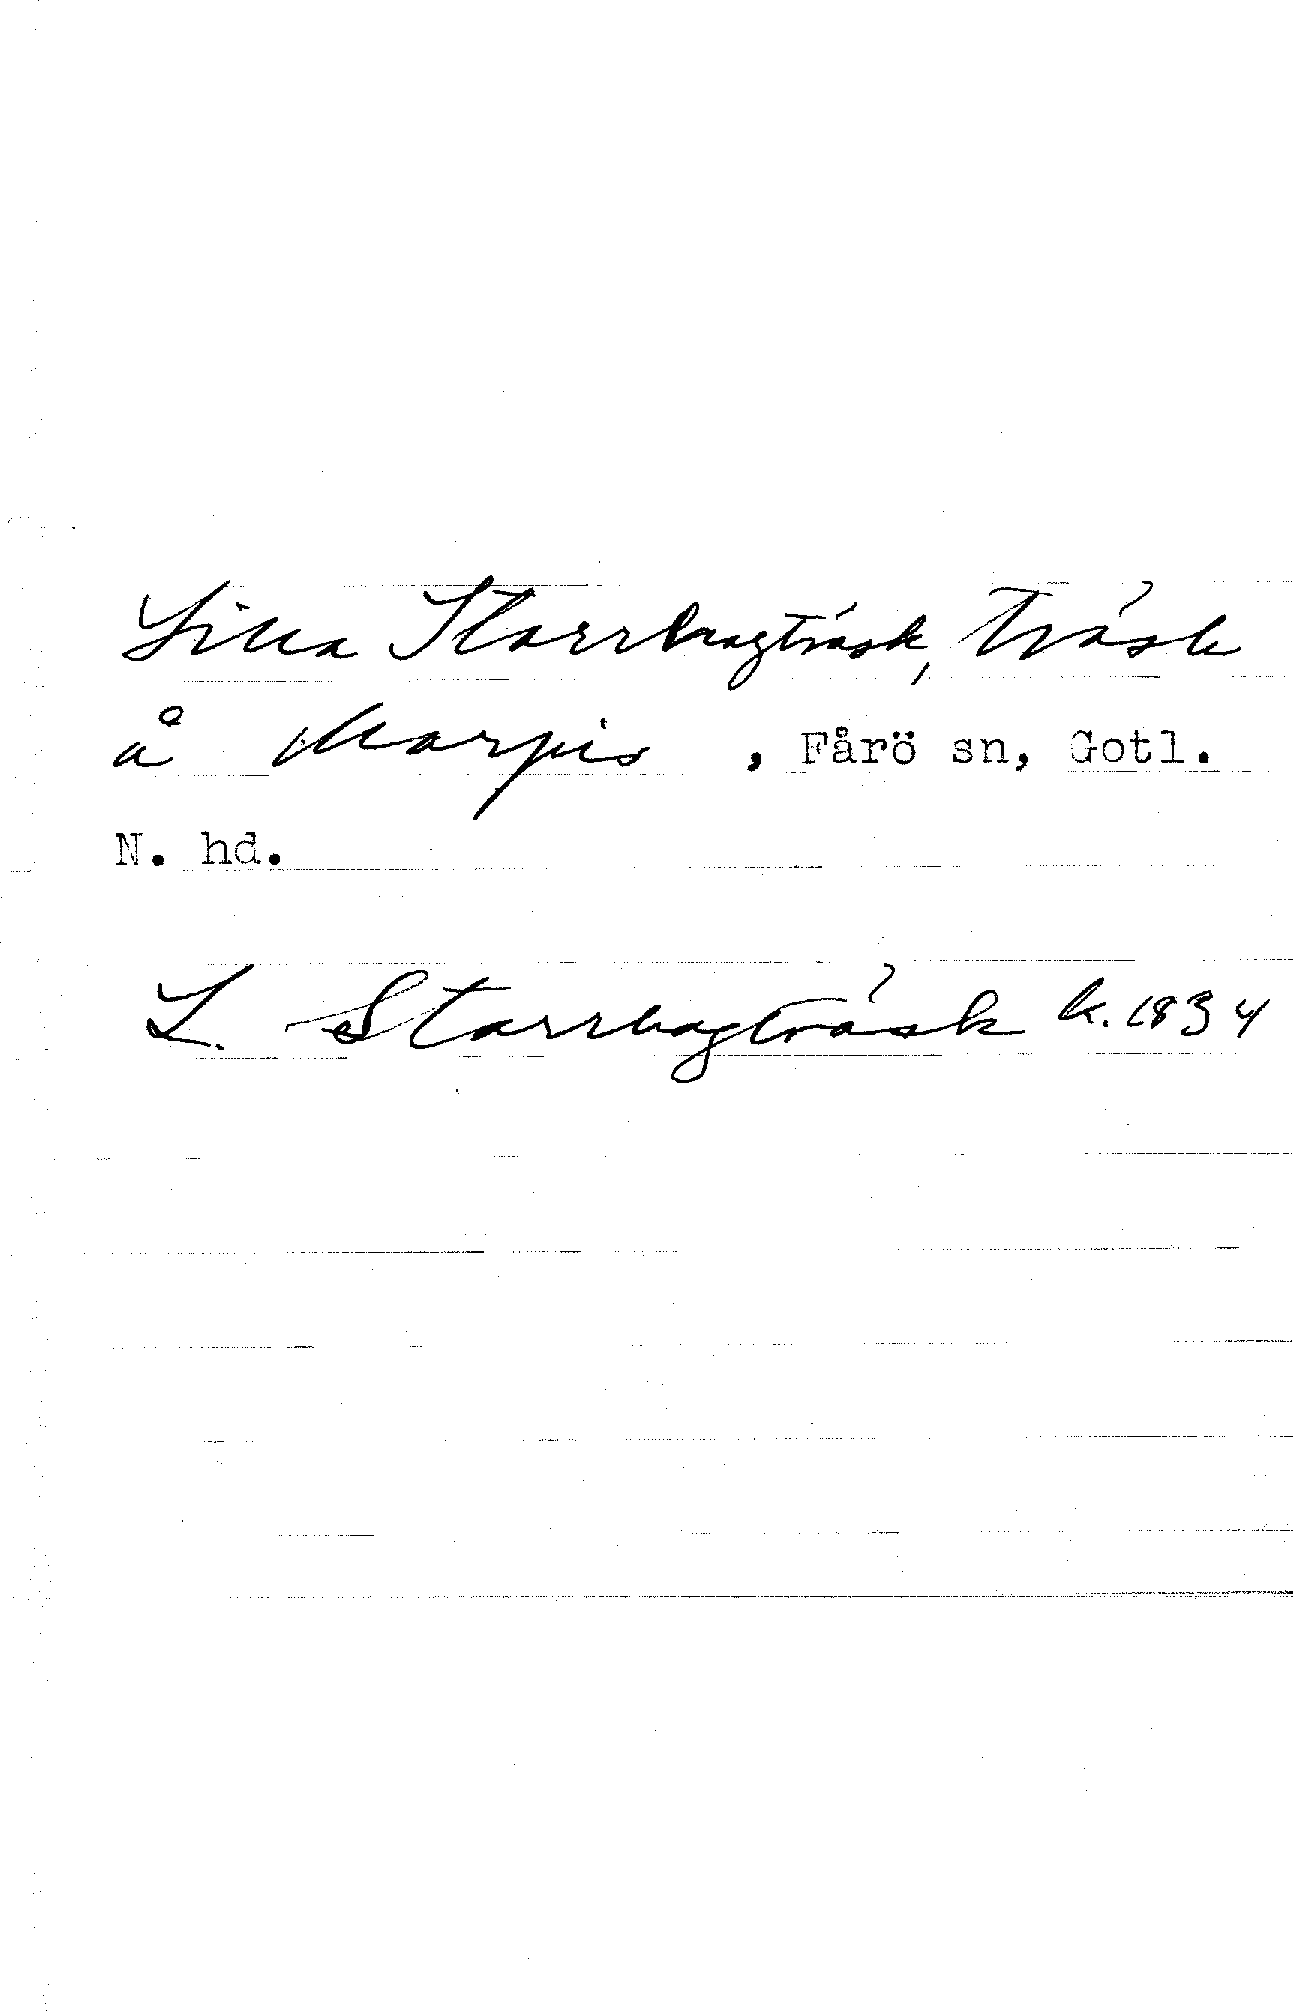 Lilla Starrhagträsk, träsk
å Marpis, Fårö sn, Gotl.
N. hd.
L. Starrhagträsk k. 1834